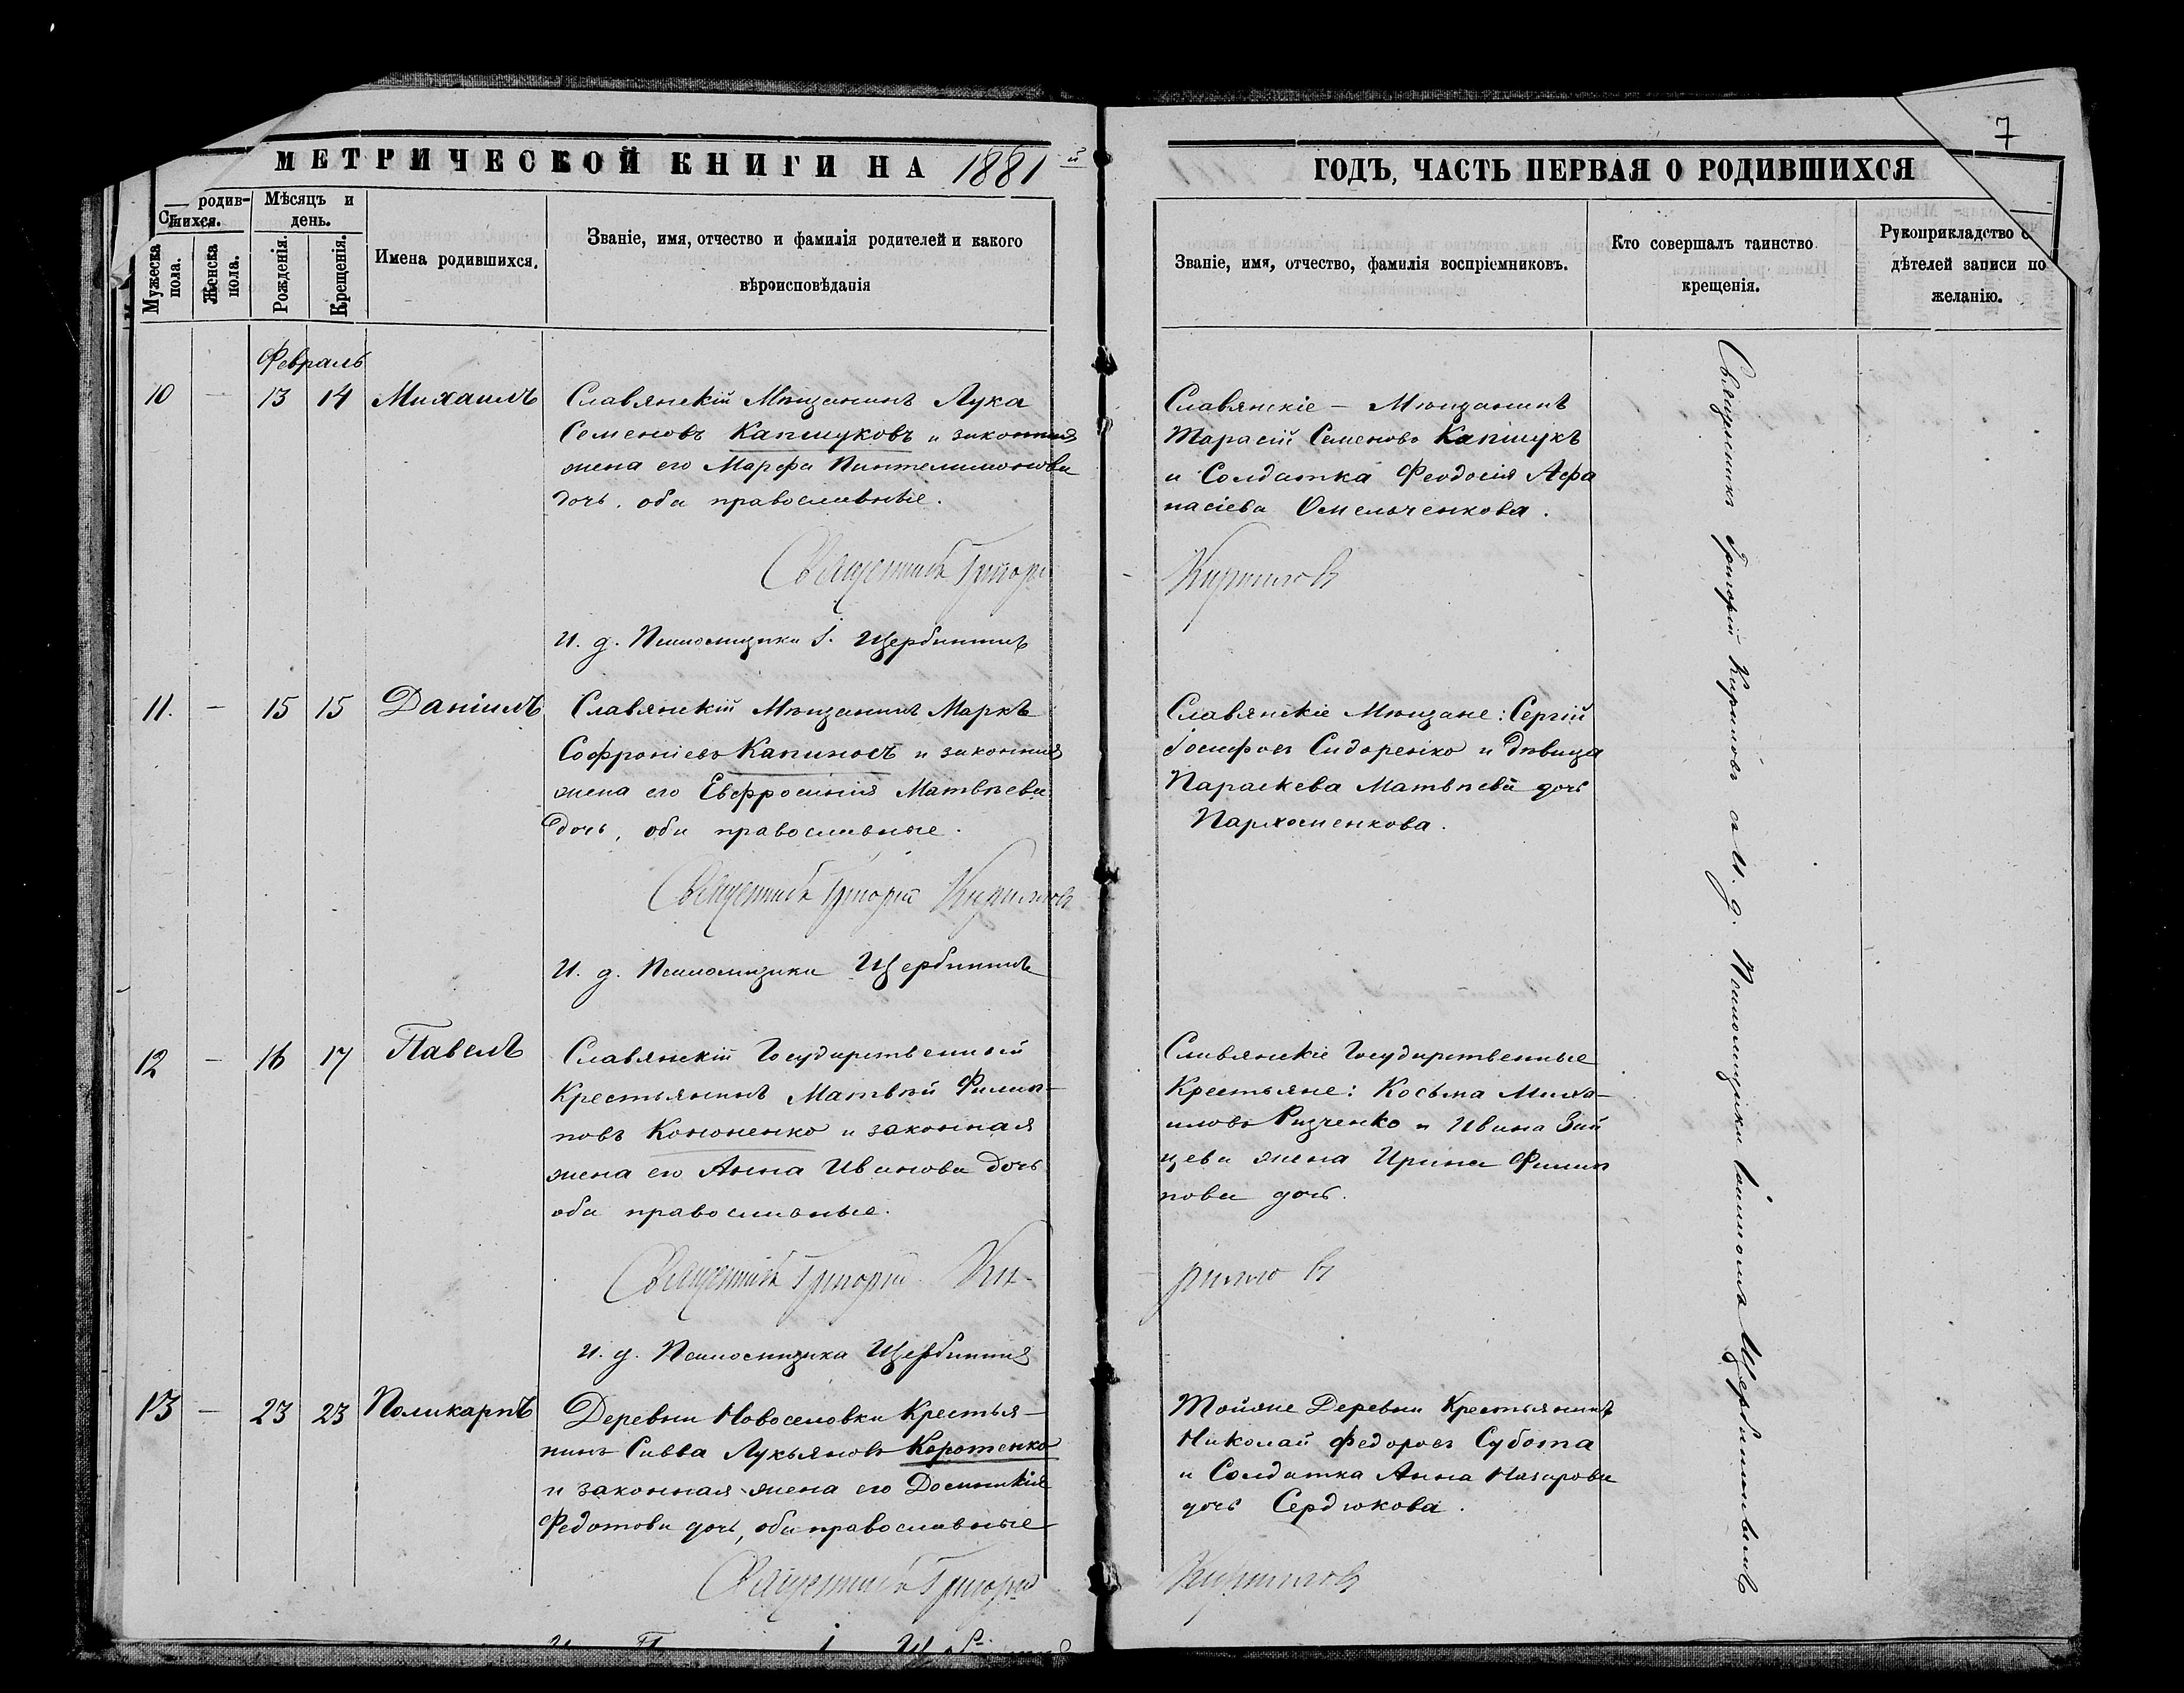 7
МЕТРИЧЕСКОЙ КНИГИ НА 1881й
ГОДЪ, ЧАСТЬ ПЕРВАЯ О РОДИВШИХСЯ
родив-
шихся.
Мужеска пола.
Женска пола.
Мѣсяцъ и
день.
Рожденія.
Крещенія.
Имена родившихся.
Званіе, имя, отчество и фамилія родителей и какого
вѣроисповѣданія
Званіе, имя, отчество, фамилія воспріемниковъ.
Кто совершалъ таинство
крещенія.
Рукоприкладство
дѣтелей записи по
желанію.
Февраль
10 — 13 14 Михаилъ
Славянскій Мѣщанинъ Лука
Семеновъ Капшуковъ и законная
жена его Марфа Пантелимонова
дочь, оба православные.
Священникъ Григорій
И. д. Псаломщика І. Щербининъ
Славянскіе — Мѣщанинъ
Тарасій Семеновъ Капшукъ
и Солдатка Феодосія Афа
насіева Омельченкова.
Кириловъ
11. — 15 15 Даніилъ
Славянскій Мѣщанинъ Маркъ
Софроніевъ Капиносъ и законная
жена его Евфросинія Матвѣева
дочь, оба православные.
Священникъ Григорій Кириловъ
И. д. Псаломщика Щербининъ
Славянскіе Мѣщане: Сергій
Іосифовъ Сидоренко и дѣвица
Параскева Матвѣева дочь
Пархоменкова.
12 — 16 17 Павелъ
Славянскій Государственный
Крестьянинъ Матвѣй Филип-
повъ Кононенко и законная
жена его Анна Иванова дочь
оба православные.
Священникъ Григорій Ки-
И. д. Псаломщика Щербининъ
Славянскіе Государственные
Крестьяне: Косьма Миха-
иловъ и Ивана
жена Ирина Филип
пова дочь.
риловъ
13 — 23 23 Поликарпъ
Деревни Новоселовки Крестья-
нинъ Савва Лукьяновъ Коротенко
и законная жена его Домникія
Федотова дочь, оба православные
Священникъ Григорій
Тойже Деревни Крестьянинъ
Николай Федоровъ Субота
и Солдатка Анна Назарова
дочь Сердюкова.
Кириловъ
Священникъ Григорій Кириловъ съ И. д. Псаломщика Щербининымъ